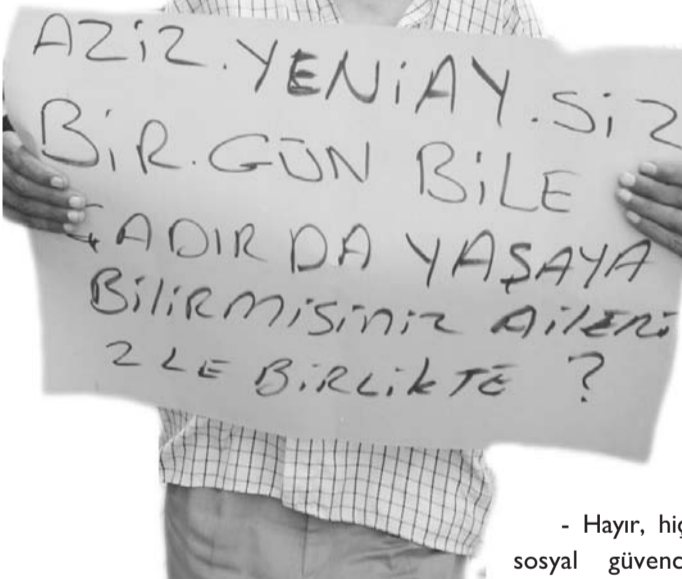 AZiZ.YENiAY.SiZ
BiR.GÜN BiLE
ÇADIR DA YAŞAYA
BiLiRMiSiNiZ AiLENi
ZLE BiRLiKTE ?
- Hayır, hiç
sosyal güvenc